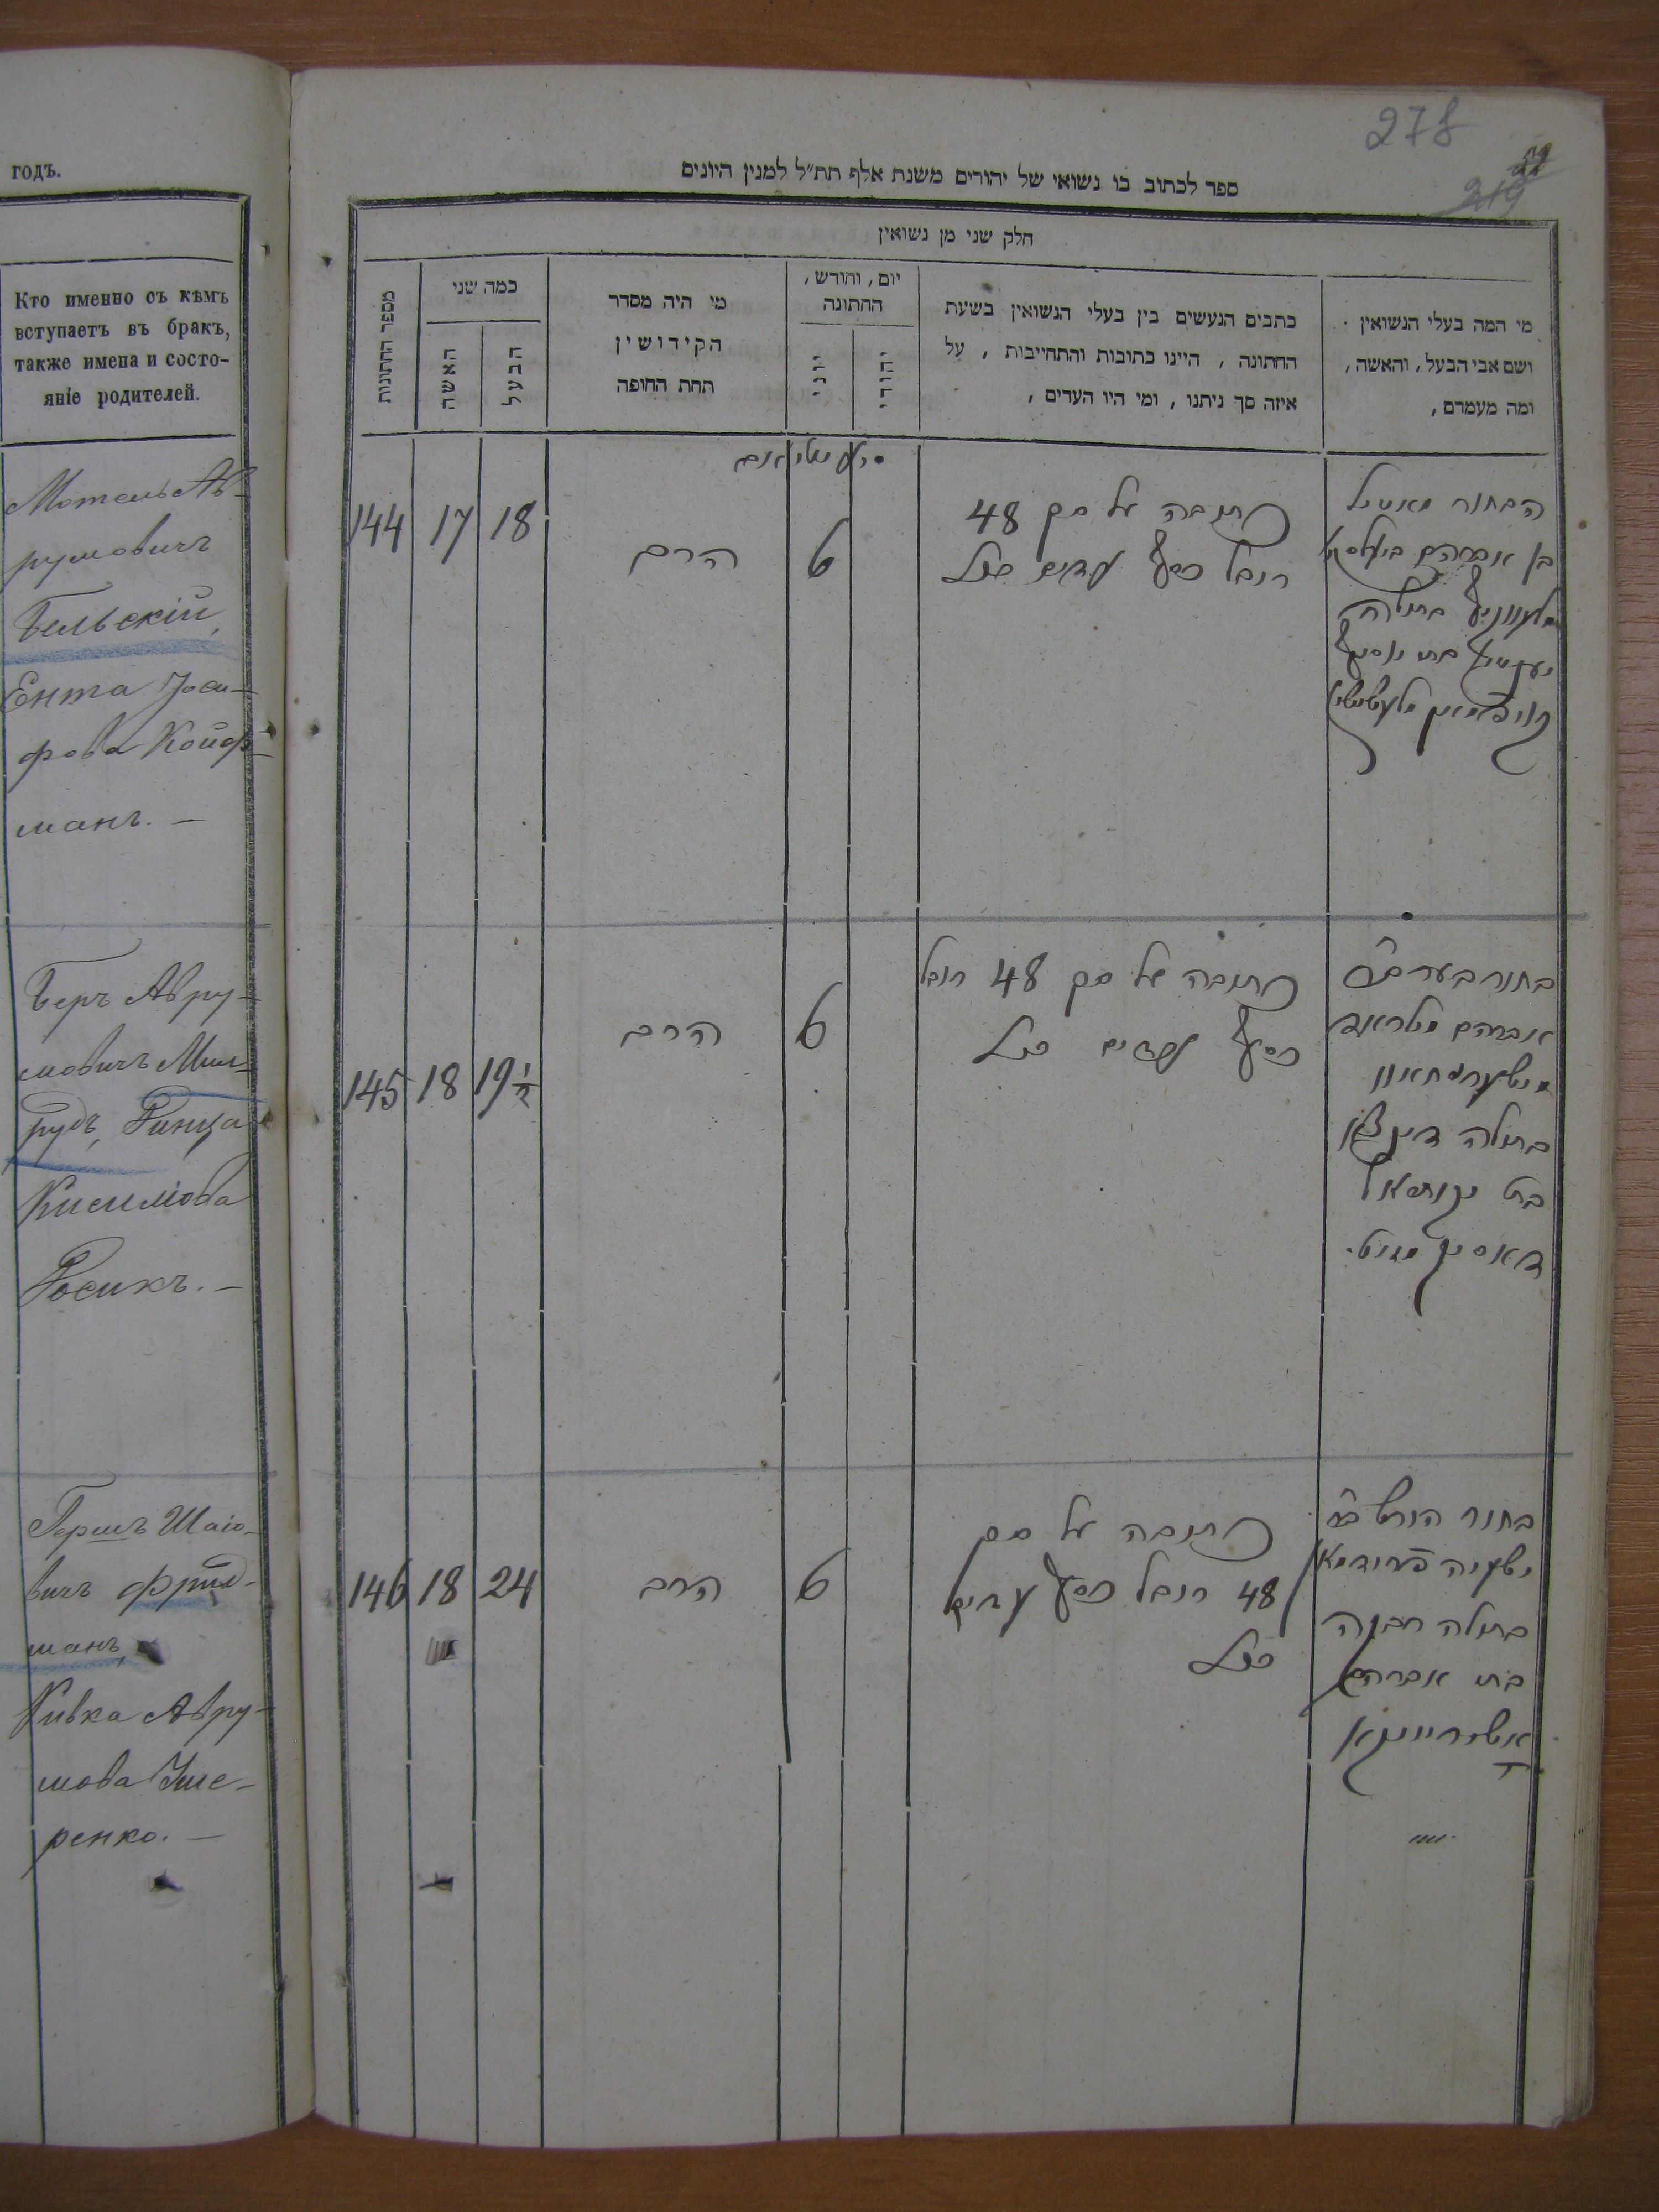 годъ.
Кто именно съ кѣмъ
вступаетъ въ бракъ,
также имена и состо-
яніе родителей.
Мотель Ав-
румовичъ
Бельскій,
Ента Іоси-
фова Койф-
манъ. —
Беръ Авру-
мовичъ Мил-
рудъ, Ринца
Кисилiова
Росикъ. —
Гершъ Шаiо-
вичъ Фрид-
манъ,
Ривка Авру-
мова Уше-
ренко. —
278
219
ספר לכתוב בו נשואי של יהודים משנת אלף תת״ל למנין היונים
חלק שני מן נשואין
מספר החתונות
כמה שני
האשה
הבעל
מי היה מסדר
הקידושין
תחת החופה
יום, וחודש,
החתונה
יוני
יהודי
כתבים הנעשים בין בעלי הנשואין בשעת
החתונה, היינו כתובות והתחייבות, על
איזה סך ניתנו, ומי היו העדים,
מי המה בעלי הנשואין
ושם אבי הבעל, והאשה,
ומה מעמדם,
144 17 18
הרב
6
כתובה על סך 48
רובל כסף עדים
הבחור מאטיל
בן אברהם ביעלסקי
בתולה
יענטא בת יוסף
קויפמאן
145 18 19 1/2
הרב
6
כתובה על סך 48 רובל
כסף עדים
בחור בער ב״ר
אברהם מילראד
בתולה רינצא
בת יקותיאל
ראסיק
146 18 24
הרב
6
כתובה על סך
48 רובל כסף עדים
בחור הירש ב״ר
ישעיה פרידמאן
בתולה רבקה
בת אברהם
אושרייענקא